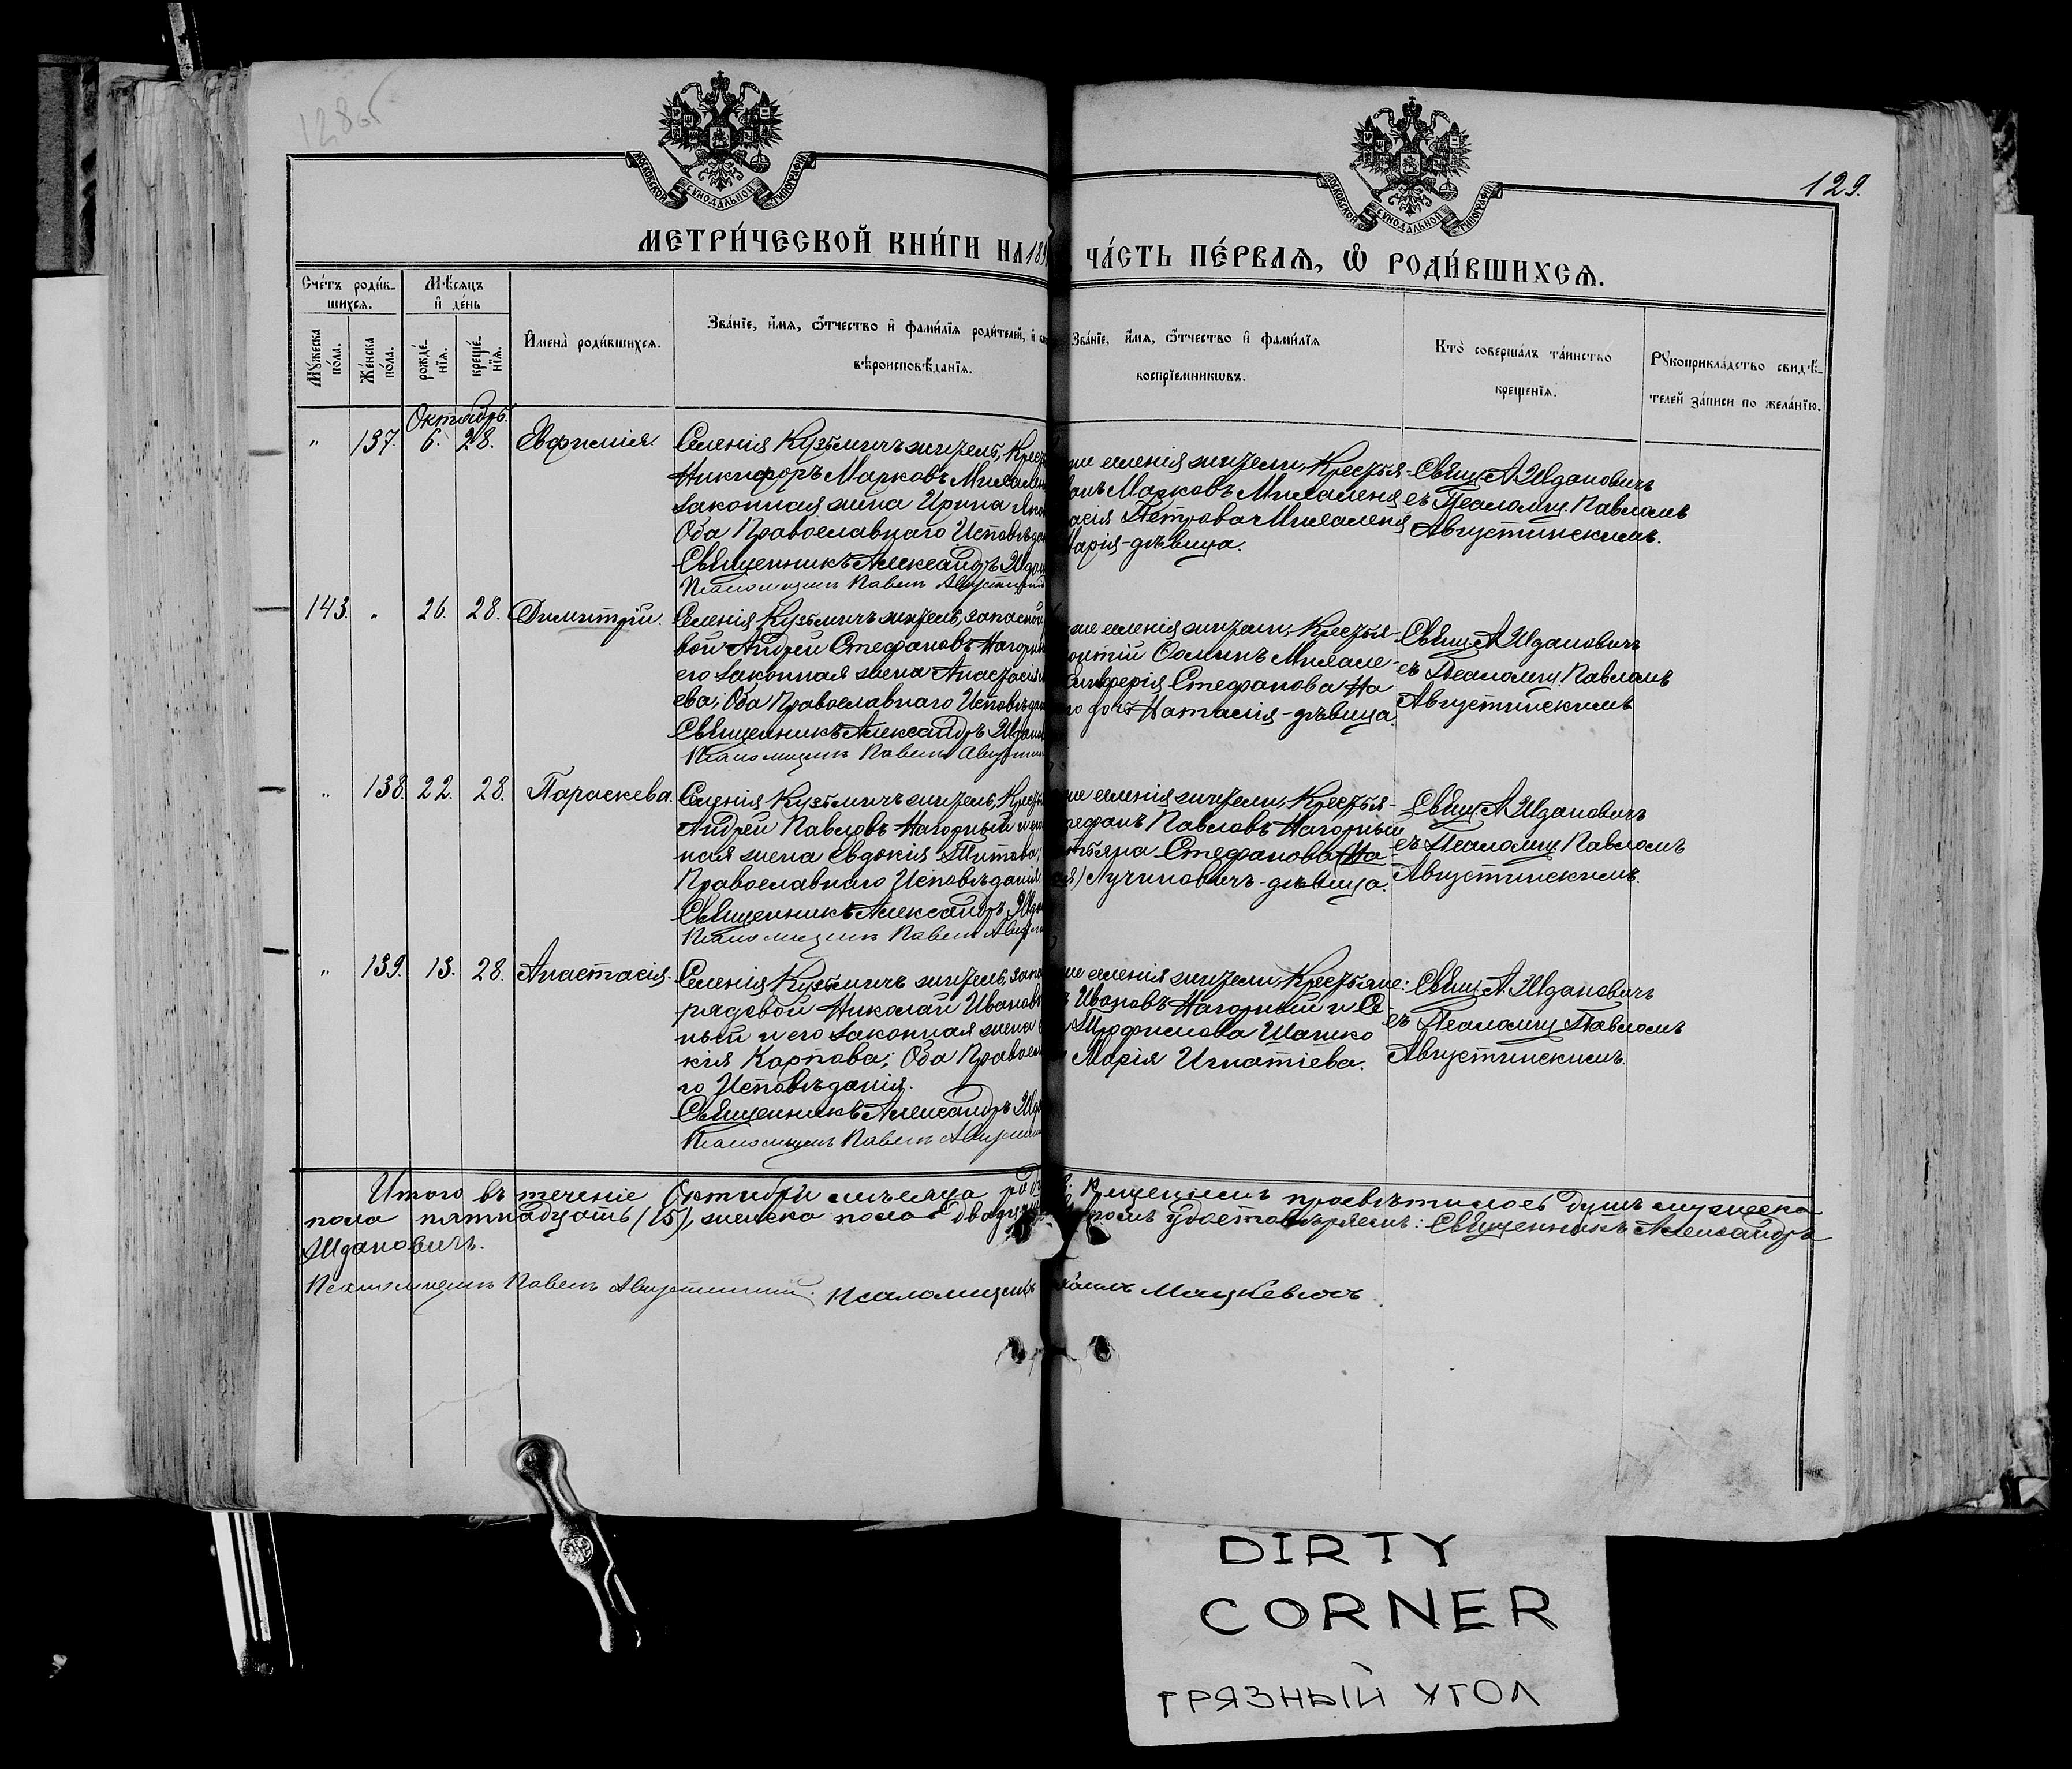 128об
129.
МОСКОВСКОЙ СѴНОДАЛЬНОЙ ТИПОГРАФІИ
МОСКОВСКОЙ СѴНОДАЛЬНОЙ ТИПОГРАФІИ
МЕТРИ́ЧЕСКОЙ КНИ́ГИ НА 189
ЧА́СТЬ ПЕ́РВАѦ, Ѡ҆ РОДИ́ВШИХСѦ.
Сче́тъ роди́в-
шихсѧ.
Мѣ́сѧцъ
и҆ де́нь
Мꙋ́жеска
по́ла.
Же́нска
по́ла.
рожде́-
нїѧ.
креще́-
нїѧ.
И҆мена̀ роди́вшихсѧ.
Зва́нїе, и҆́мѧ, ѻ҆́тчество и҆ фами́лїѧ роди́телей, и҆
вѣроисповѣ́данїѧ.
Зва́нїе, и҆́мѧ, ѻ҆́тчество и҆ фами́лїѧ
воспрїе́мникѡвъ.
Кто̀ соверша́лъ та́инство
креще́нїѧ.
Рꙋкоприкла́дство свидѣ́-
телей за́писи по жела́нїю.
Октябрь.
" 137. 6. 28. Евфимія.
Селенія Кузьмичъ житель, Крест
Никифоръ Марковъ Михален
законная жена Ирина Яко
Оба Православнаго Исповѣдан
Священникъ Александръ Ждан
Псаломщикъ Павелъ Августин
же селенія жители, Крестья-
ванъ Марковъ Михаленя
асія Петрова Михаленя
Марія-дѣвица.
Свящ. А. Ждановичъ
съ Псаломщ. Павломъ
Августинскимъ.
143. " 26. 28. Димитрій.
Селенія Кузьмичъ житель, запасной
вой Андрей Стефановъ Нагорн
его законная жена Анастасія
ева; Оба Православнаго Исповѣдан
Священникъ Александръ Ждан
Псаломщикъ Павелъ Августин
же селенія жители, Крестья-
Ѳоминъ Михале-
Стефанова На
дочь Наталія-дѣвица.
Свящ. А. Ждановичъ
съ Псаломщ. Павломъ
Августинскимъ
" 138. 22. 28. Параскева.
Селенія Кузьмичъ житель, Крест
Андрей Павловъ Нагорный и его
ная жена Евдокія Титова;
Православнаго Исповѣданія.
Священникъ Александръ Жда
Псаломщикъ Павелъ Август
же селенія жители, Крестья-
тефанъ Павловъ Нагорный
тьяна Стефанова (На-
ая) Лучиновичъ-дѣвица.
Свящ. А. Ждановичъ
съ Псаломщ. Павломъ
Августинскимъ.
" 139. 13. 28. Анастасія.
Селенія Кузьмичъ житель, запа
рядовой Николай Ивановъ
ный и его законная жена
кія Карпова; Оба Правосл
го Исповѣданія.
Священникъ Александръ Жда
Псаломщикъ Павелъ Августин
же селенія жители, Крестьяне:
Ивановъ Нагорный и Ѳ
Трофимова Шашко
Марія Игнатіева.
Свящ. А. Ждановичъ
съ Псаломщ. Павломъ
Августинскимъ.
Итого въ теченіе Октября мѣсяца Крещеніемъ просвѣтилось душъ мужеска
пола пятнадцать (15), женска пола удостовѣряемъ: Священникъ Александръ
Ждановичъ.
Псаломщикъ Павелъ Августинскій. Псаломщикъ Мацкевичъ
DIRTY
CORNER
ГРЯЗНЫЙ УГОЛ